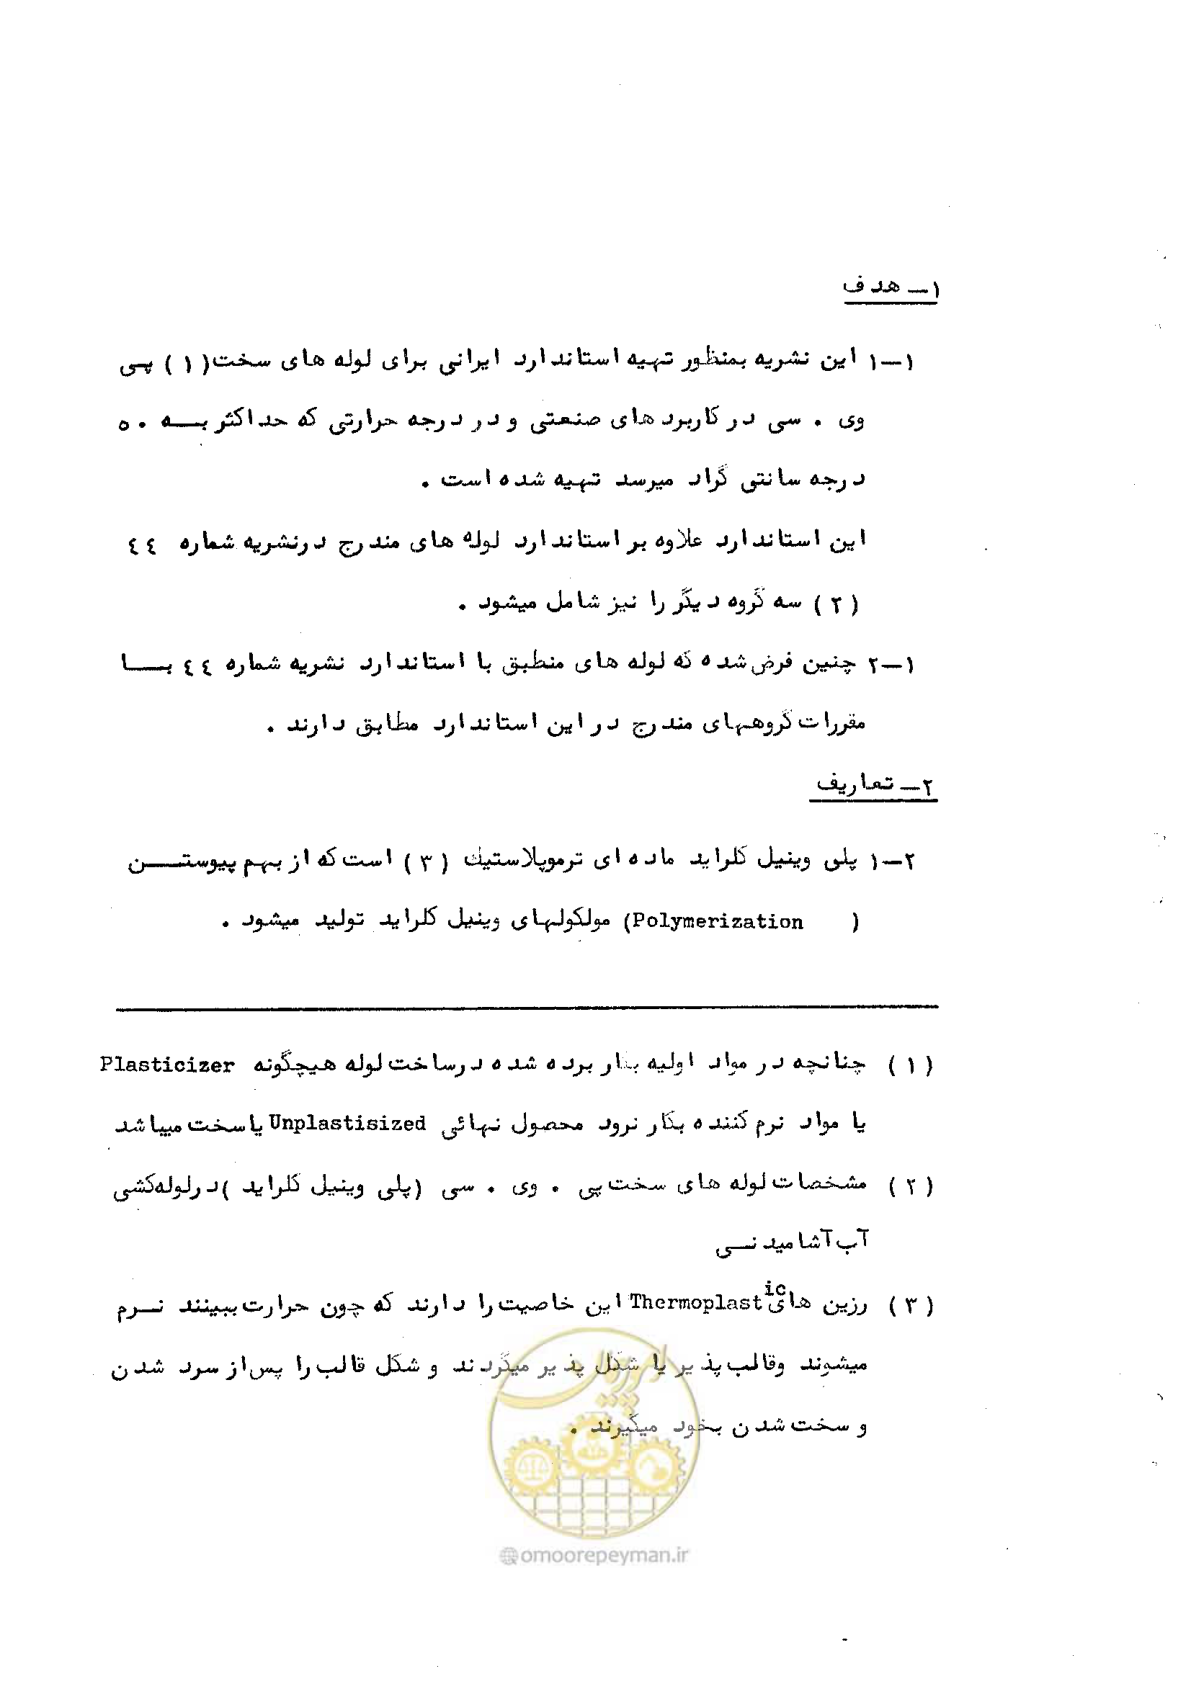 ۱ــ هدف
۱ــ۱ این نشریه بمنظور تهیه استاندارد ایرانی برای لوله های سخت(۱) پی
وی . سی در کاربردهای صنعتی و در درجه حرارتی که حداکثر بــه ۵۰
درجه سانتی گراد میرسد تهیه شده است .
این استاندارد علاوه بر استاندارد لوله های مندرج در نشریه شماره ٤٤
(۲) سه گروه دیگر را نیز شامل میشود .
۱ــ۲ چنین فرض شده که لوله های منطبق با استاندارد نشریه شماره ٤٤ بــا
مقررات گروههای مندرج در این استاندارد مطابق دارند .
۲ــ تعاریف
۲ــ۱ پلی وینیل کلراید ماده ای ترموپلاستیك (۳) است که از بهم پیوستــن
(Polymerization) مولکولهای وینیل کلراید تولید میشود .
(۱) چنانچه در مواد اولیه بکار برده شده در ساخت لوله هیچگونه Plasticizer
یا مواد نرم کننده بکار نرود محصول نهائی Unplastisized یا سخت میباشد
(۲) مشخصات لوله های سخت پی . وی . سی (پلی وینیل کلراید) در لوله‌کشی
آب آشامیدنــی
(۳) رزین های Thermoplastic این خاصیت را دارند که چون حرارت ببینند نــرم
میشوند وقالب پذیر یا شکل پذیر میگردند و شکل قالب را پس از سرد شدن
و سخت شدن بخود میگیرند .
امور پیمان
@omoorepeyman.ir